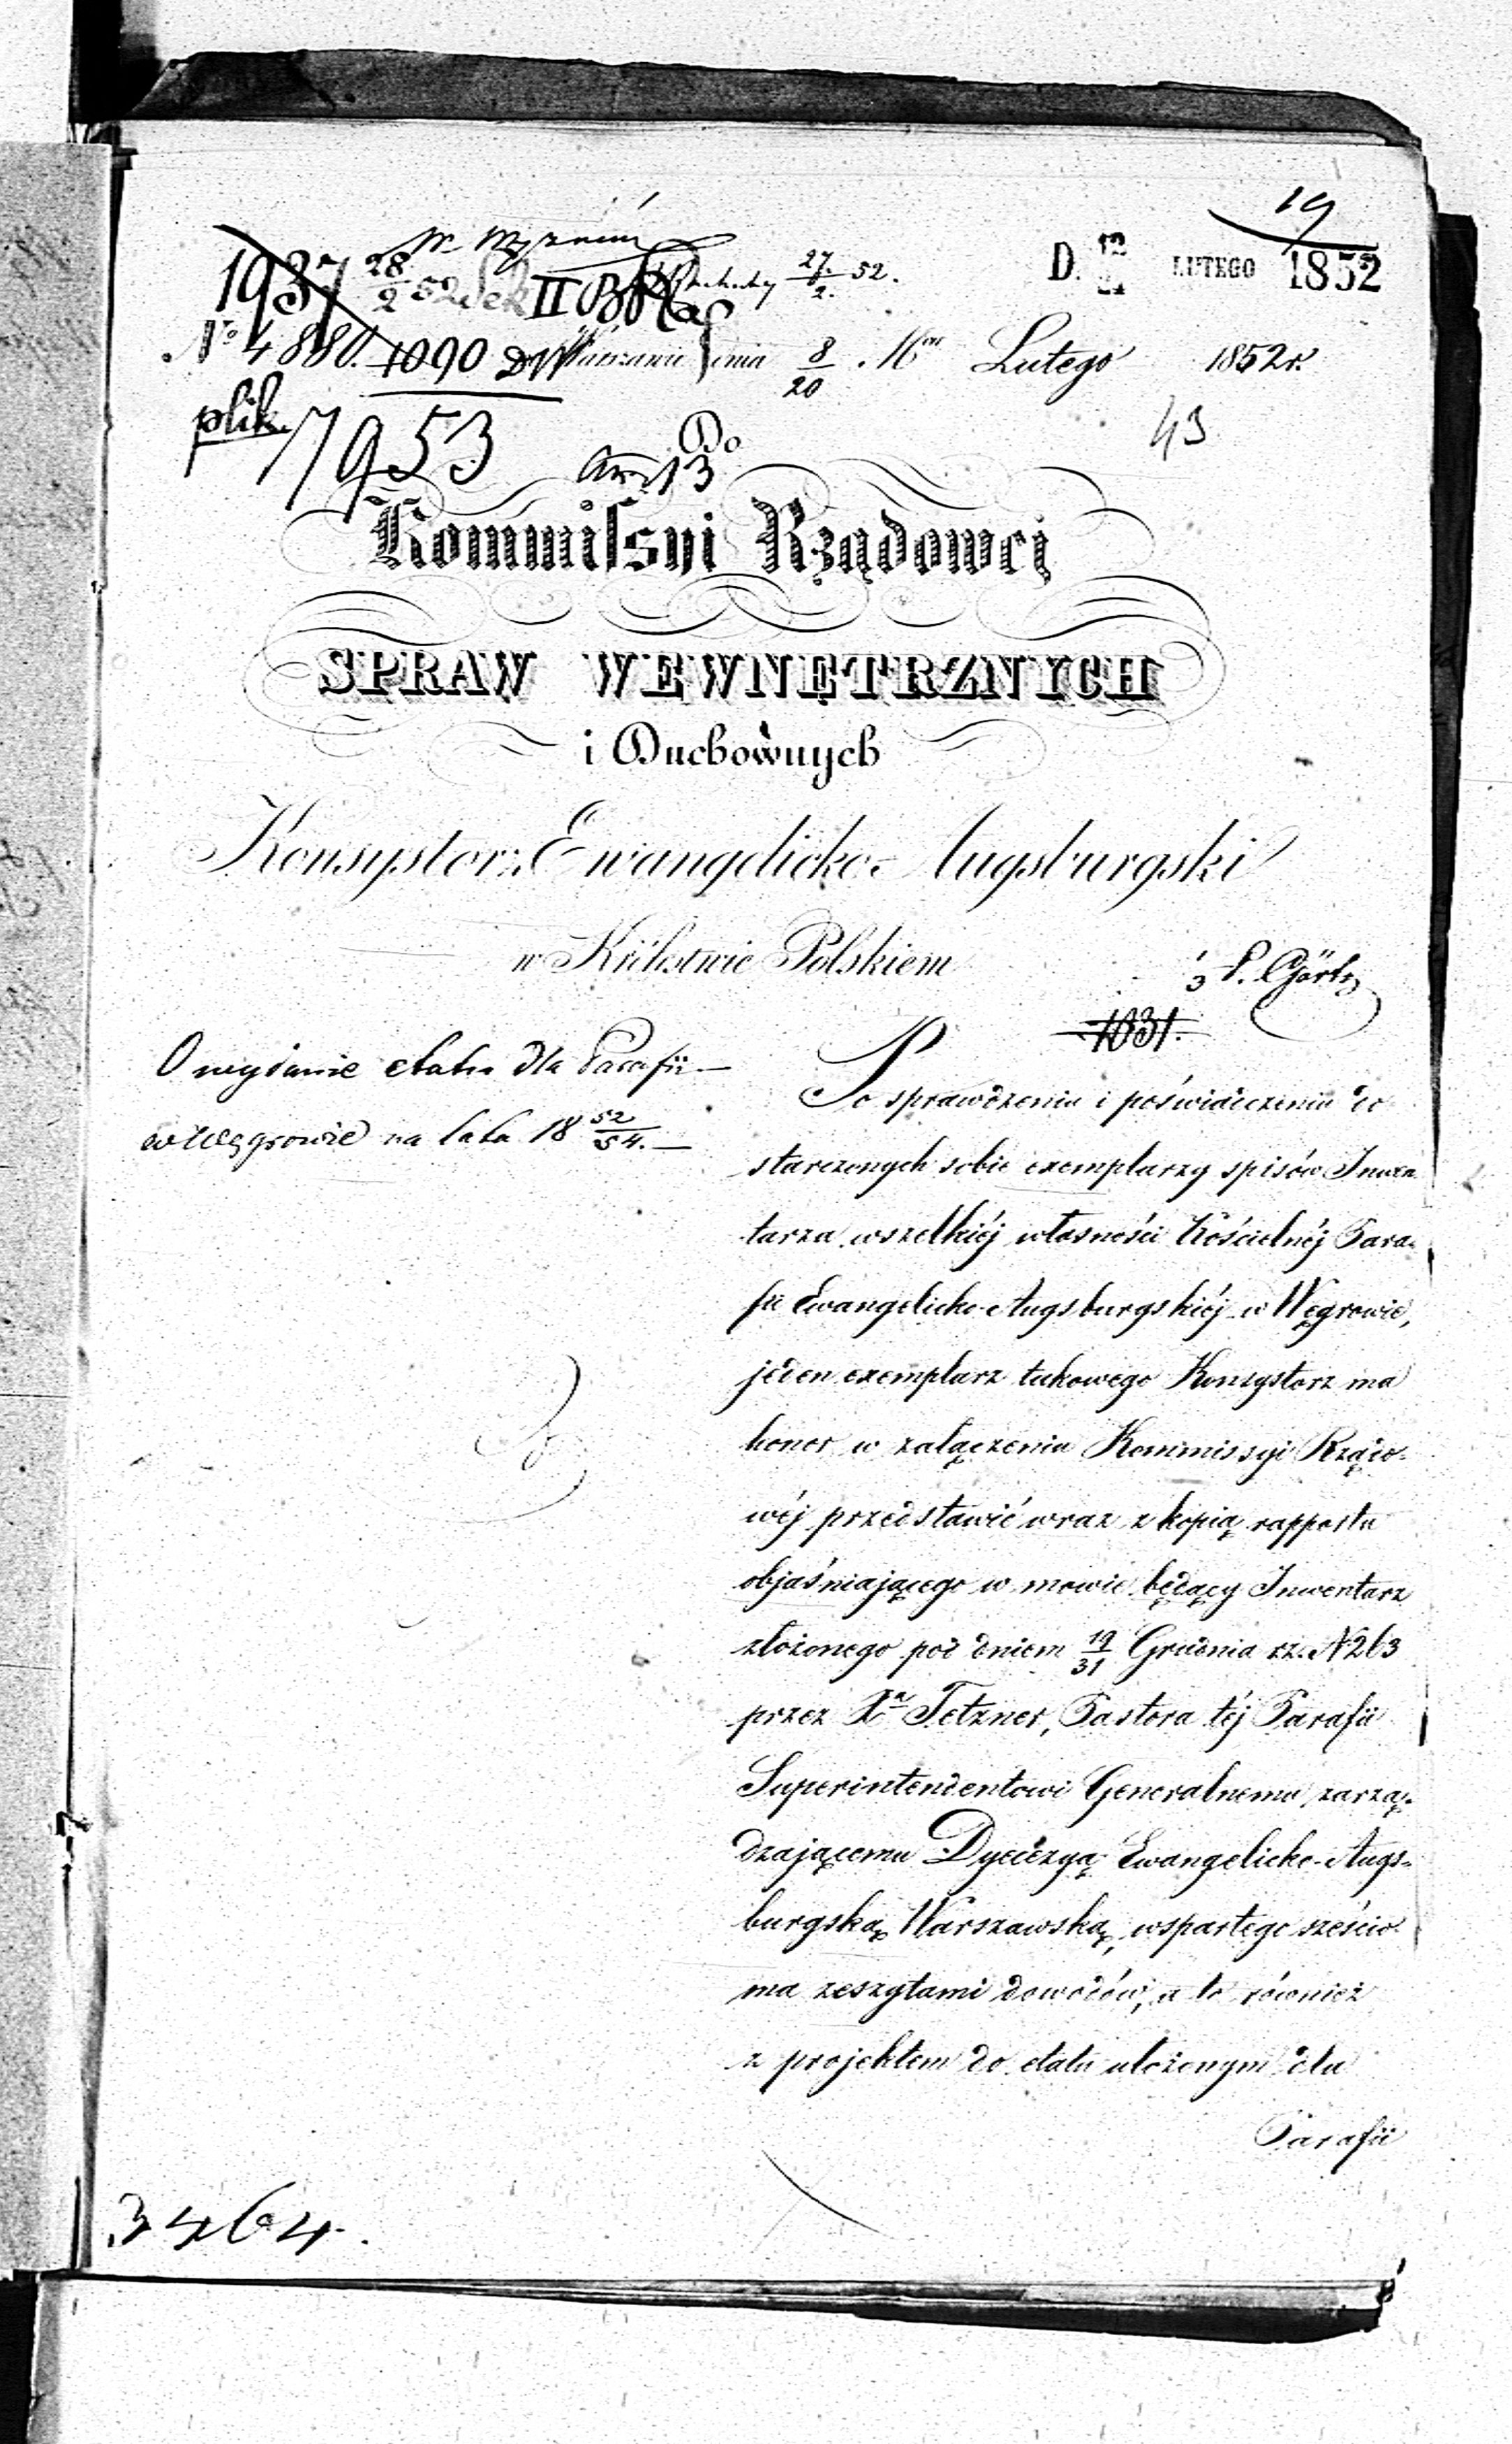 19
D. 12/24 LUTEGO 1852
1937 28/2 52 II 27/2. 52.
No 4880. 1090 Warszawie dnia 8/20 Lutego 1852 r.
plik. 7953
43
Do
13
Kommissyi Rządowéj
SPRAW WEWNĘTRZNYCH
i Duchownych
Konsystorz Ewangelicko-Augsburgski
w Królestwie Polskiem
P. Görtz
1831.
O wydanie etatu dla Parafii
w Węgrowie na lata 18 52/54.
Po sprawdzeniu i poświadczeniu do
starczonych sobie exemplarzy spisów Inwen
tarza wszelkiéj własności Kościelnéj Para-
fii Ewangelicko-Augsburgskiéj w Węgrowie,
jeden exemplarz takowego Konsystorz ma
honor w załączeniu Kommissyi Rządo-
wéj przedstawić wraz z kopią rapportu
objaśniającego w mowie będący Inwentarz
złożonego pod dniem 19/31 Grudnia r.z. N 263
przez Xa Tetzner, Pastora téj Parafii
Superintendentowi Generalnemu, zarzą-
dzającemu Dyecezyą Ewangelicko-Augs-
burgską Warszawską, wspartego sześcio-
ma zeszytami dowodów, a to również
z projektem do etatu ułożonym dla
Parafii
3464.